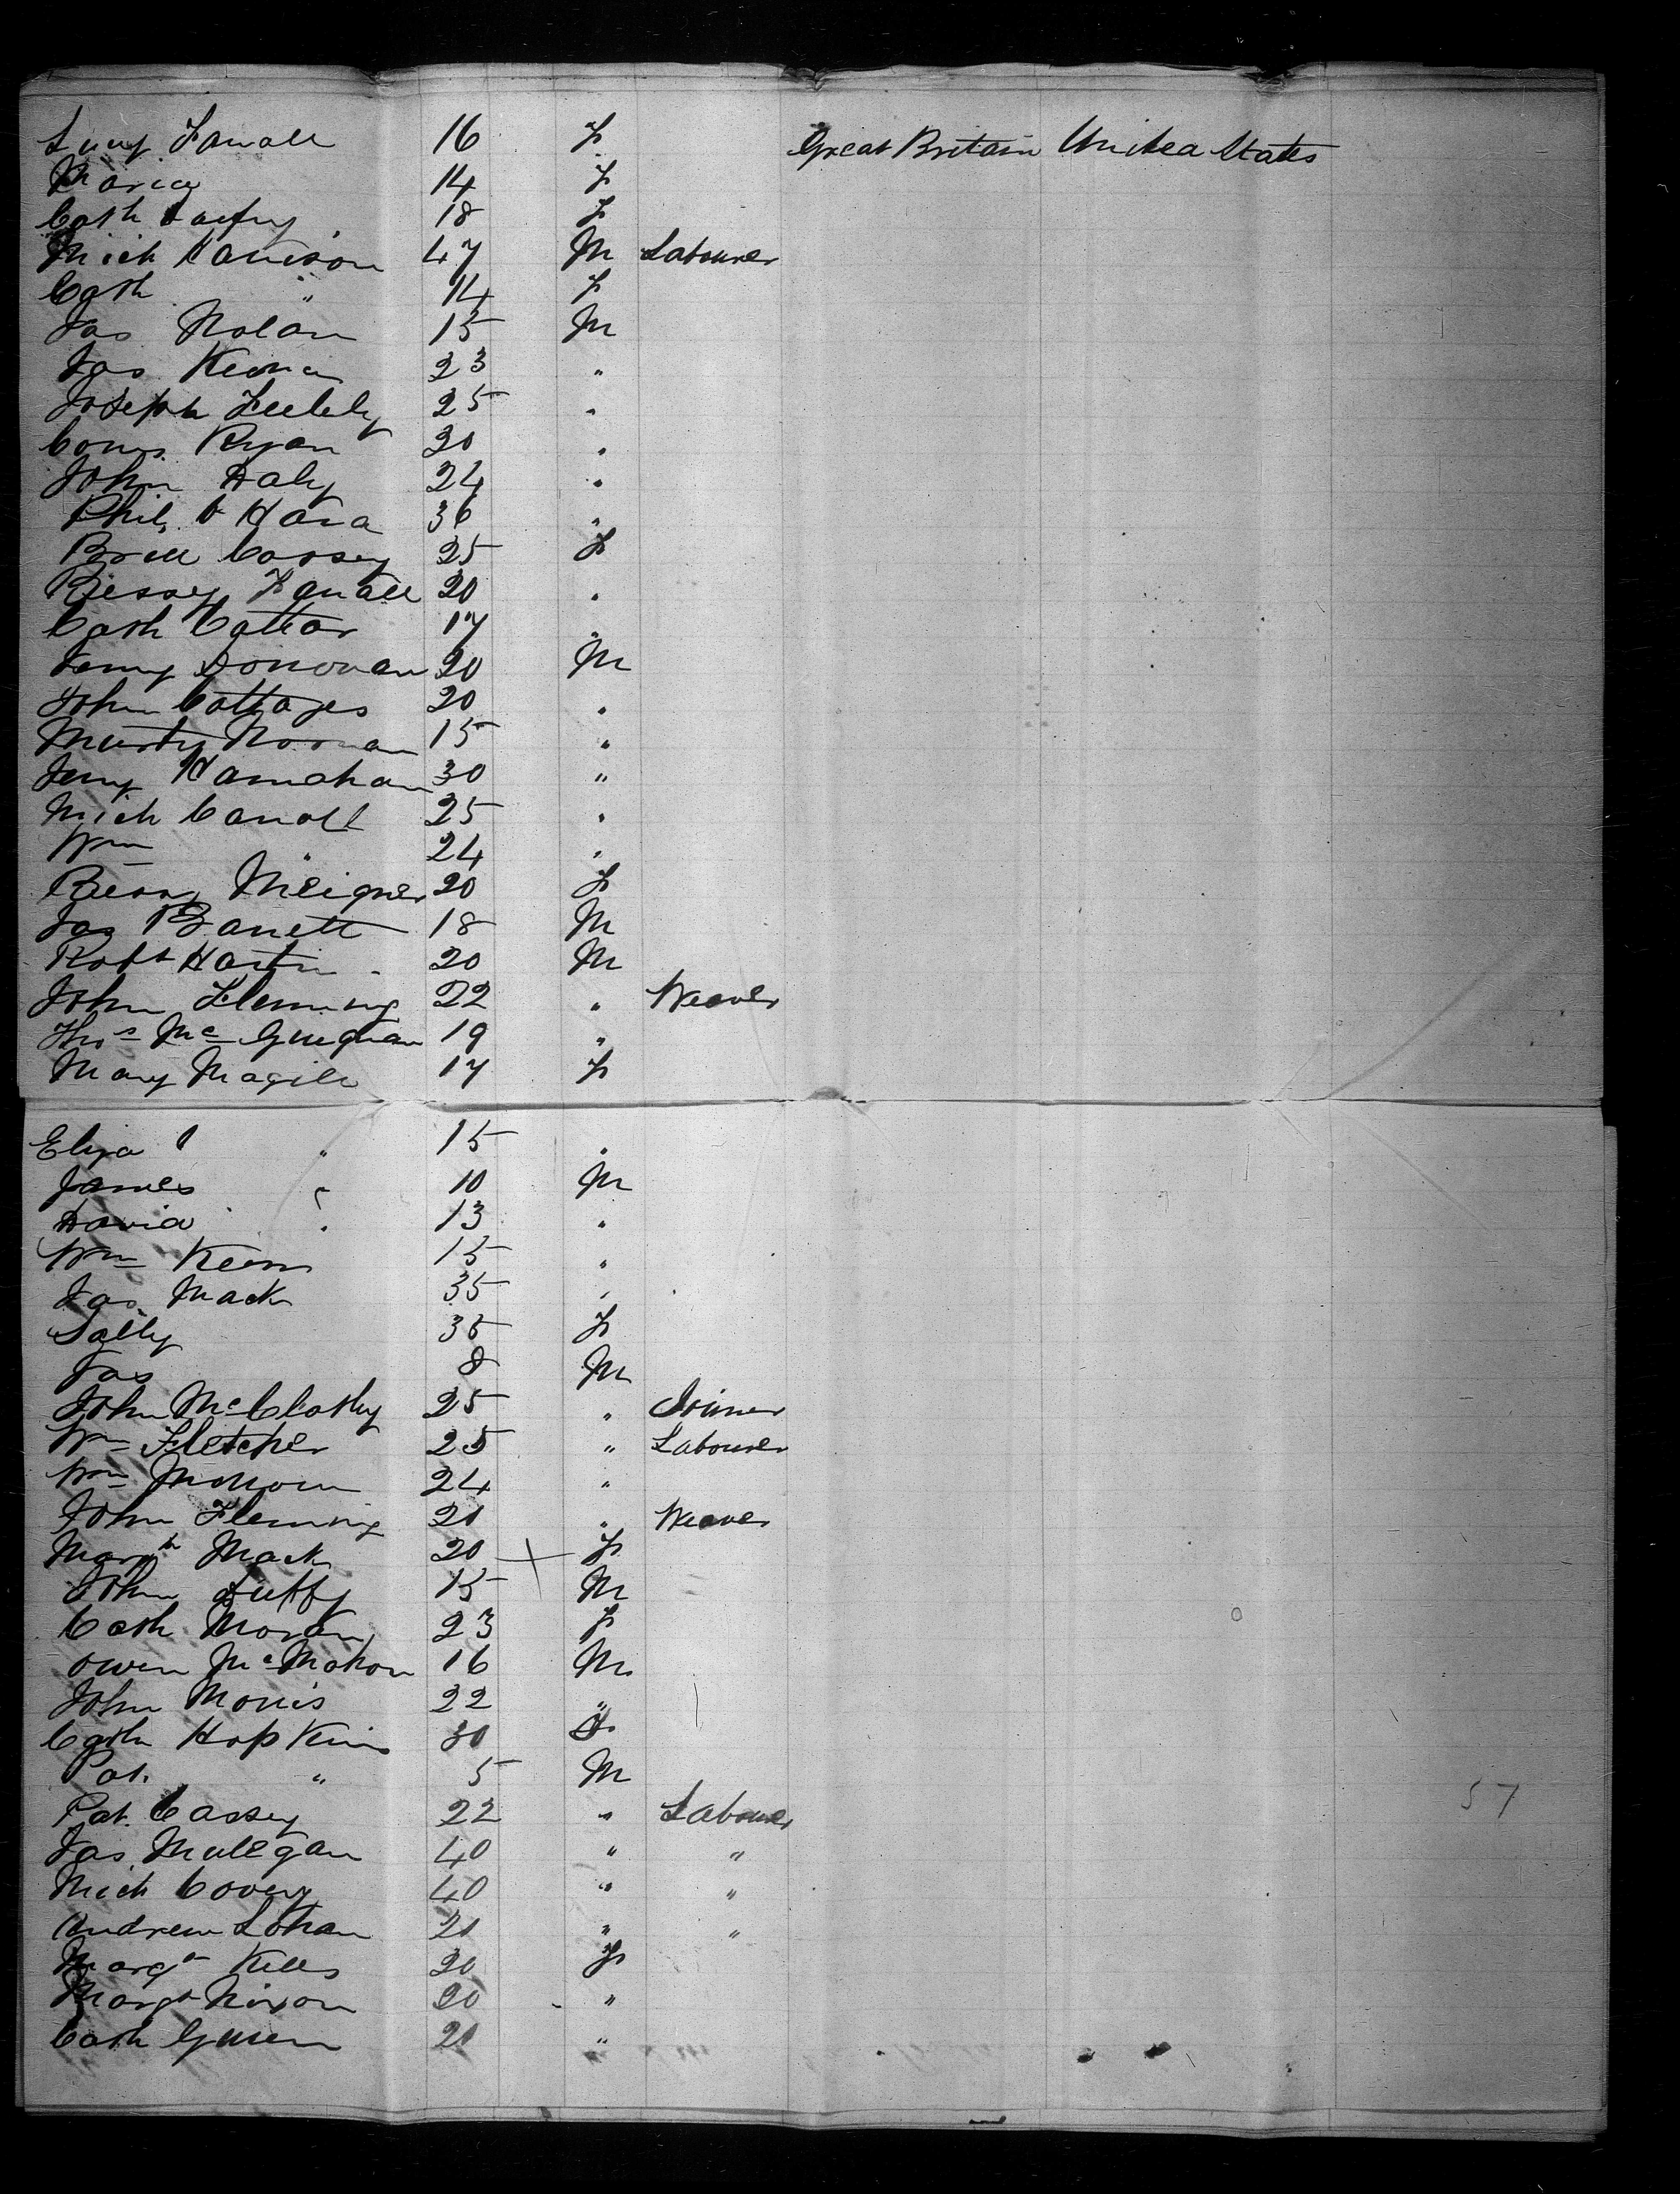 Lucy Farrall 16 F Great Britain United States
Maria 14 F
Cath 18 F
Mich Harrison 47 M Labourer
Cath " 14 F
Jas Nolan 15 M
Jas 23 "
Joseph 25 "
Corns Ryan 20 "
John Daly 24 "
Phil O Hara 36 "
Cassey 25 F
Bessey Farrall 20 "
Cath 17 "
Jerry Donovan 20 M
John Cottages 20 "
Murty Noonan 15 "
Jerry Hanrahan 30 "
Mich Carroll 25 "
Wm " 24 "
20 F
Jas Barrett 18 M
Robt Hartin 20 M
John Fleming 22 " Weaver
Thos Mc Guigan 19 "
Mary Magill 17 F
Eliza " 15 "
James " 10 M
David " 13 "
Wm Keirns 15 "
Jas Mack 35 "
Sally 35 F
Jas 8 M
John McClosky 25 " Joiner
Wm Fletcher 25 " Labourer
Wm 24 "
John Fleming 21 " Weaver
Margt Mack 20 F
John Duffy 15 M
Cath Moran 23 F
Owen McMahon 16 M
John Morris 22 "
Cath Hopkins 30 F
Pat. " 5 M
Pat. Cassey 22 " Labourer
Jas Mullegan 40 " "
Mich Covery 40 " "
Andrew Lohan 21 " "
Margt Kells 20 F
Margt Nixon 20 "
Cath 21 "
57